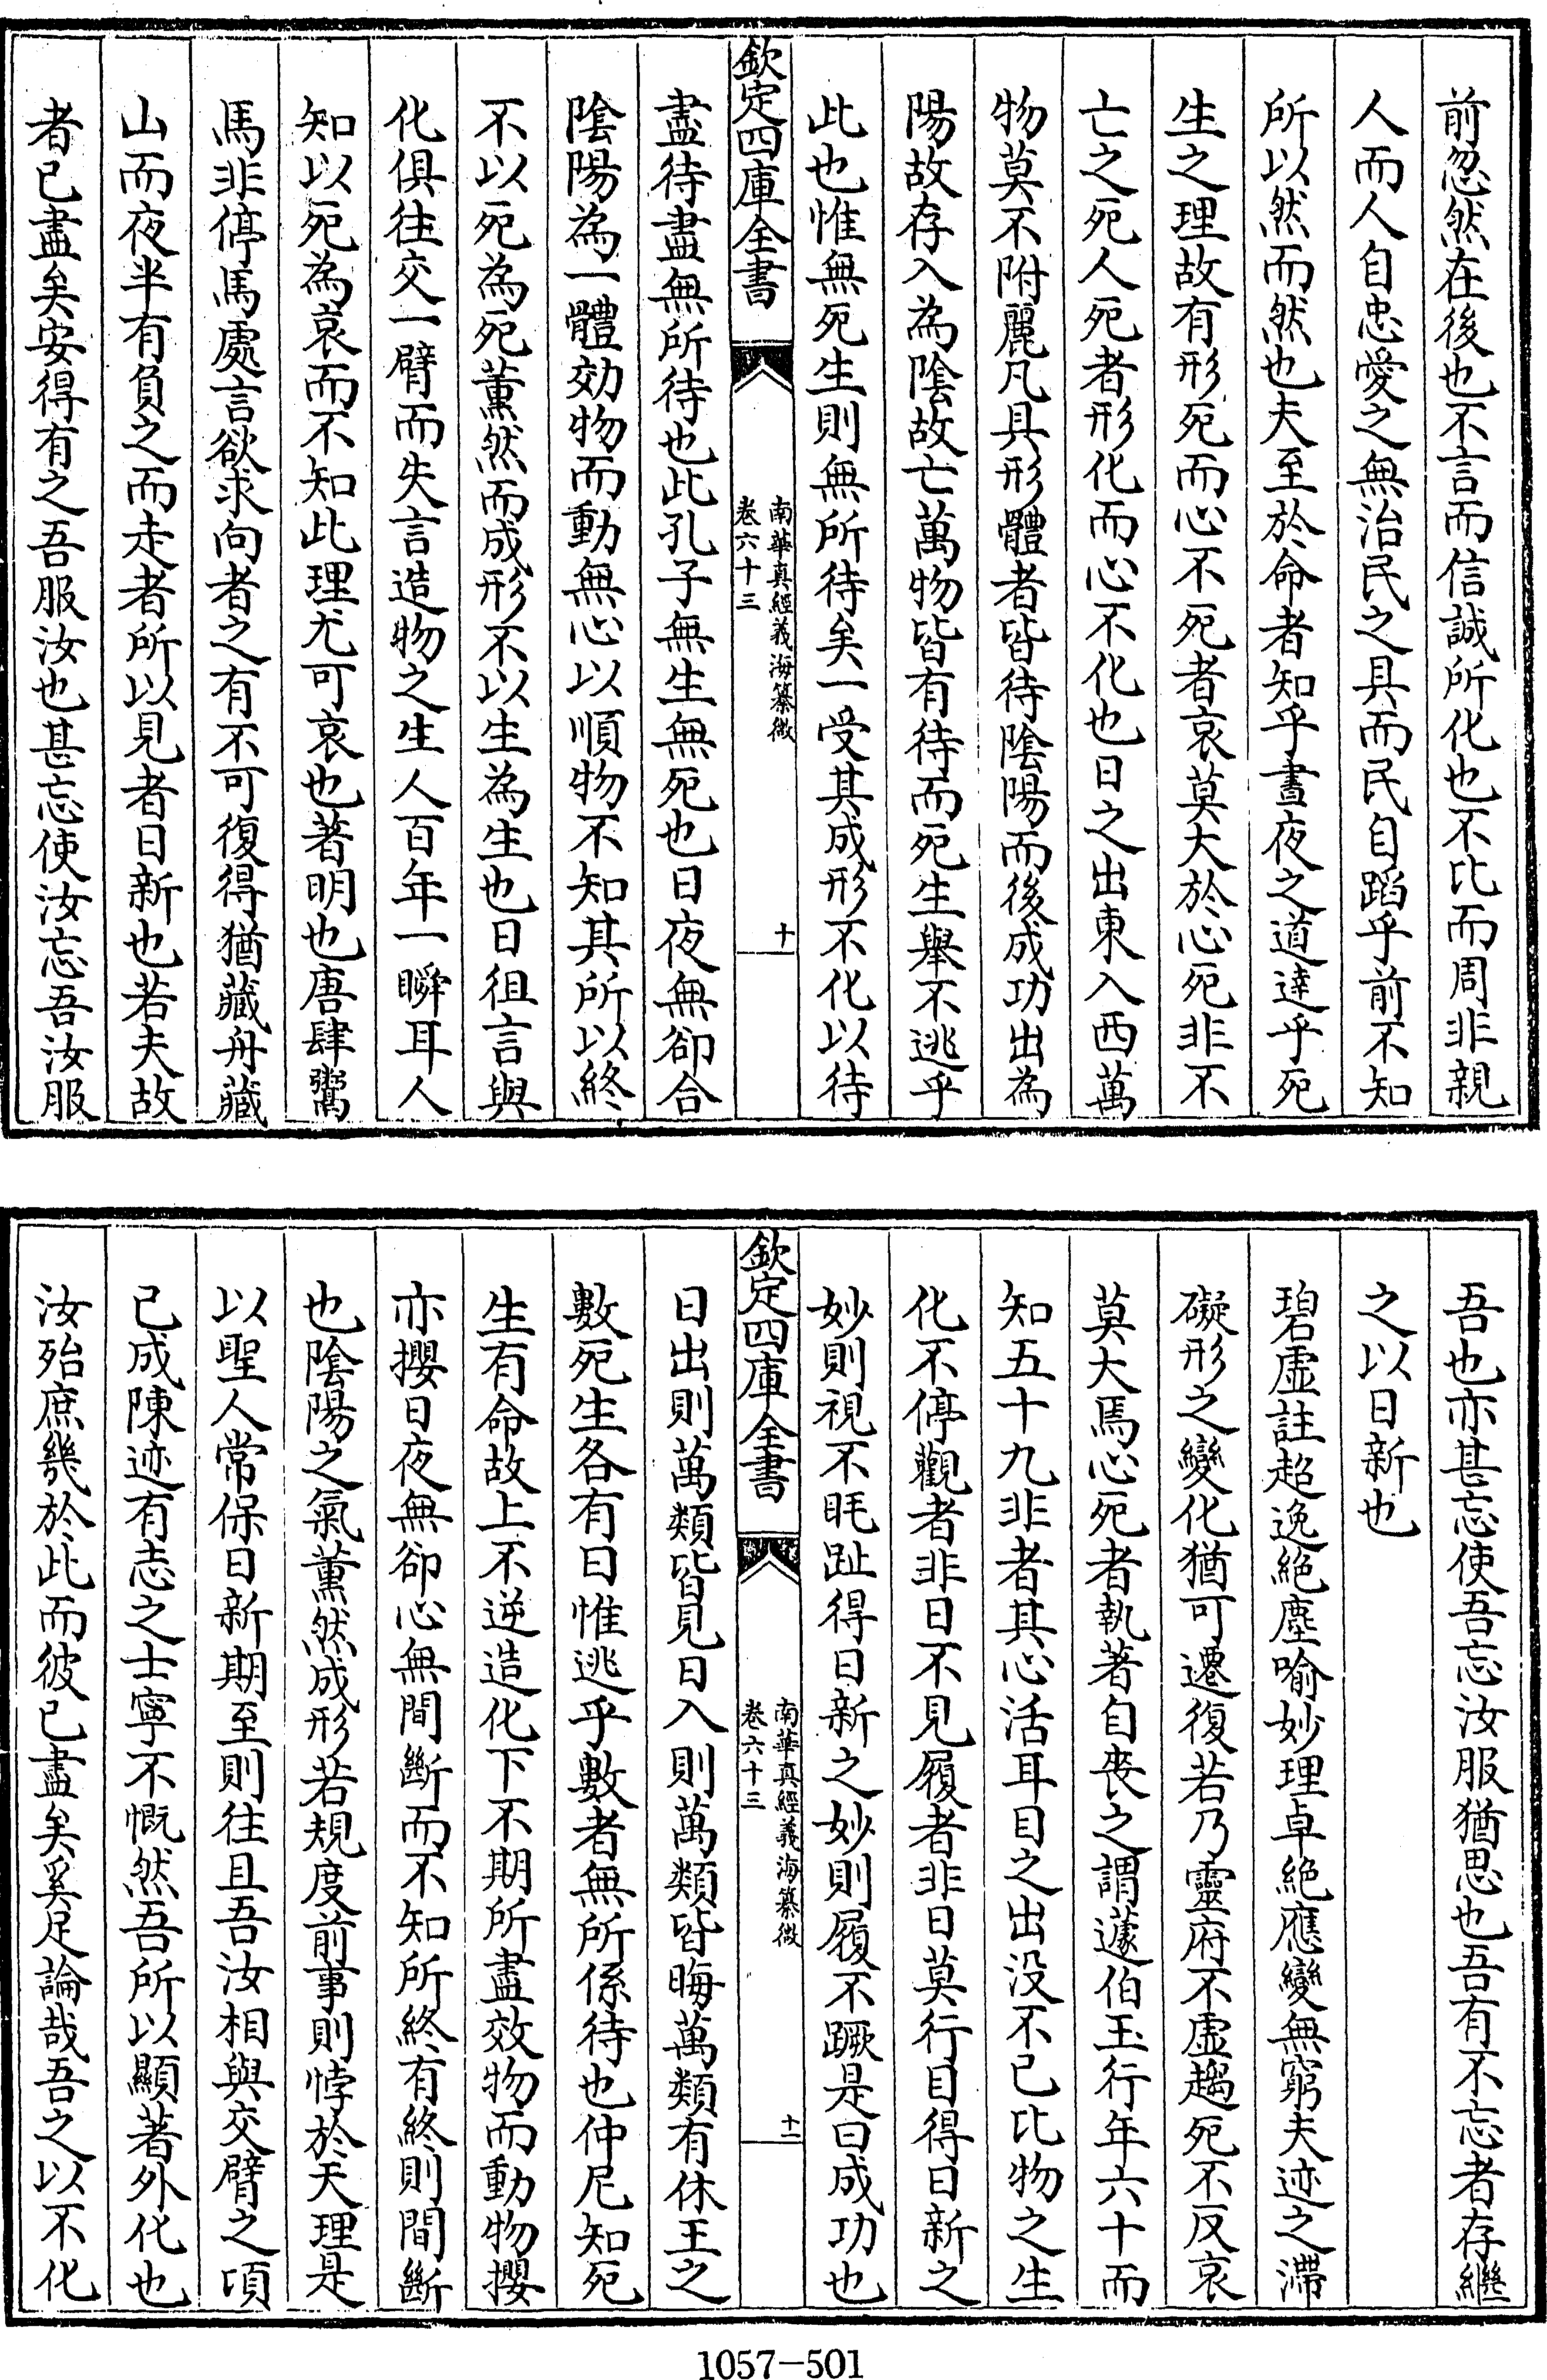 前忽然在後也不言而信誠所化也不比而周非親
人而人自忠愛之無治民之具而民自蹈乎前不知
所以然而然也夫至於命者知乎晝夜之道達乎死
生之理故有形死而心不死者哀莫大於心死非不
亡之死人死者形化而心不化也日之出東入西萬
物莫不附麗凡具形體者皆待陰陽而後成功出為
陽故存入為陰故亡萬物皆有待而死生舉不逃乎
此也惟無死生則無所待矣一受其成形不化以待
欽定四庫全書
南華真經義海纂微
卷六十三
十
盡待盡無所待也此孔子無生無死也日夜無卻合
陰陽為一體効物而動無心以順物不知其所以終
不以死為死薰然而成形不以生為生也日徂言與
化俱往交一臂而失言造物之生人百年一瞬耳人
知以死為哀而不知此理尤可哀也著明也唐肆鬻
馬非停馬處言欲求向者之有不可復得猶藏舟藏
山而夜半有負之而走者所以見者日新也若夫故
者已盡矣安得有之吾服汝也甚忘使汝忘吾汝服
吾也亦甚忘使吾忘汝服猶思也吾有不忘者存繼
之以日新也
碧虛註超逸絕塵喻妙理卓絕應變無窮夫迹之滯
礙形之變化猶可遷復若乃靈府不虛趨死不反哀
莫大焉心死者執著自喪之謂蘧伯玉行年六十而
知五十九非者其心活耳目之出沒不已比物之生
化不停觀者非日不見履者非日莫行目得日新之
妙則視不眊趾得日新之妙則履不蹶是曰成功也
欽定四庫全書
南華真經義海纂微
卷六十三
十一
日出則萬類皆見日入則萬類皆晦萬類有休王之
數死生各有曰惟逃乎數者無所係待也仲尼知死
生有命故上不逆造化下不期所盡效物而動物攖
亦攖日夜無卻心無間斷而不知所終有終則間斷
也陰陽之氣薰然成形若規度前事則悖於天理是
以聖人常保日新期至則往且吾汝相與交臂之頃
已成陳迹有志之士寧不慨然吾所以顯著外化也
汝殆庶幾於此而彼已盡矣奚足論哉吾之以不化
1057-501